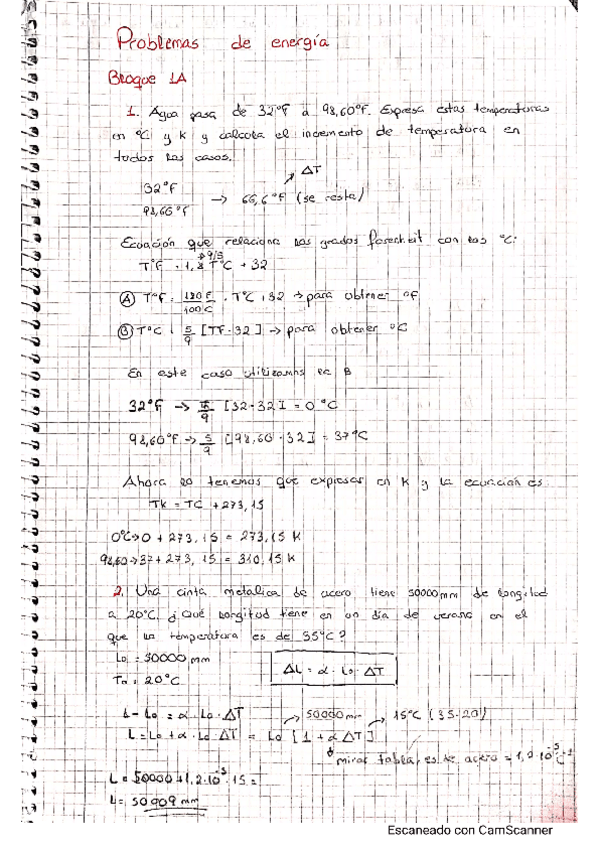 Problemas de energía
Bloque 1A
1. Agua pasa de 32°F a 98,60°F. Expresa estas temperaturas
en °C y K y calcula el incremento de temperatura en
todos los casos.
ΔT
32°F
98,60°F → 66,6°F (se resta)
Ecuación que relaciona los grados farenheit con los °C:
9/5
T°F = 1,8 T°C + 32
Ⓐ T°F = 180F/100C · T°C + 32 → para obtener °F
Ⓑ T°C = 5/9 [TF-32] → para obtener °C
En este caso utilizamos la B
32°F → 5/9 [32-32] = 0°C
98,60°F → 5/9 [98,60-32] = 37°C
Ahora lo tenemos que expresar en K y la ecuación es:
TK = TC + 273,15
0°C → 0 + 273,15 = 273,15 K
98,60 → 37 + 273,15 = 310,15 K
2. Una cinta metalica de acero tiene 50000mm de longitud
a 20°C. ¿Qué longitud tiene en un día de verano en el
que la temperatura es de 35°C?
Lo = 50000 mm
ΔL = α · Lo · ΔT
= 20°C
L - Lo = α · Lo · ΔT
50000mm → 15°C (35-20)
L = Lo + α · Lo · ΔT = Lo [1 + α ΔT]
mirar tabla, es de acero = 1,2·10⁻⁵ C⁻¹
L = 50000 + 1,2·10⁻⁵ · 15 =
L = 50009 mm
Escaneado con CamScanner